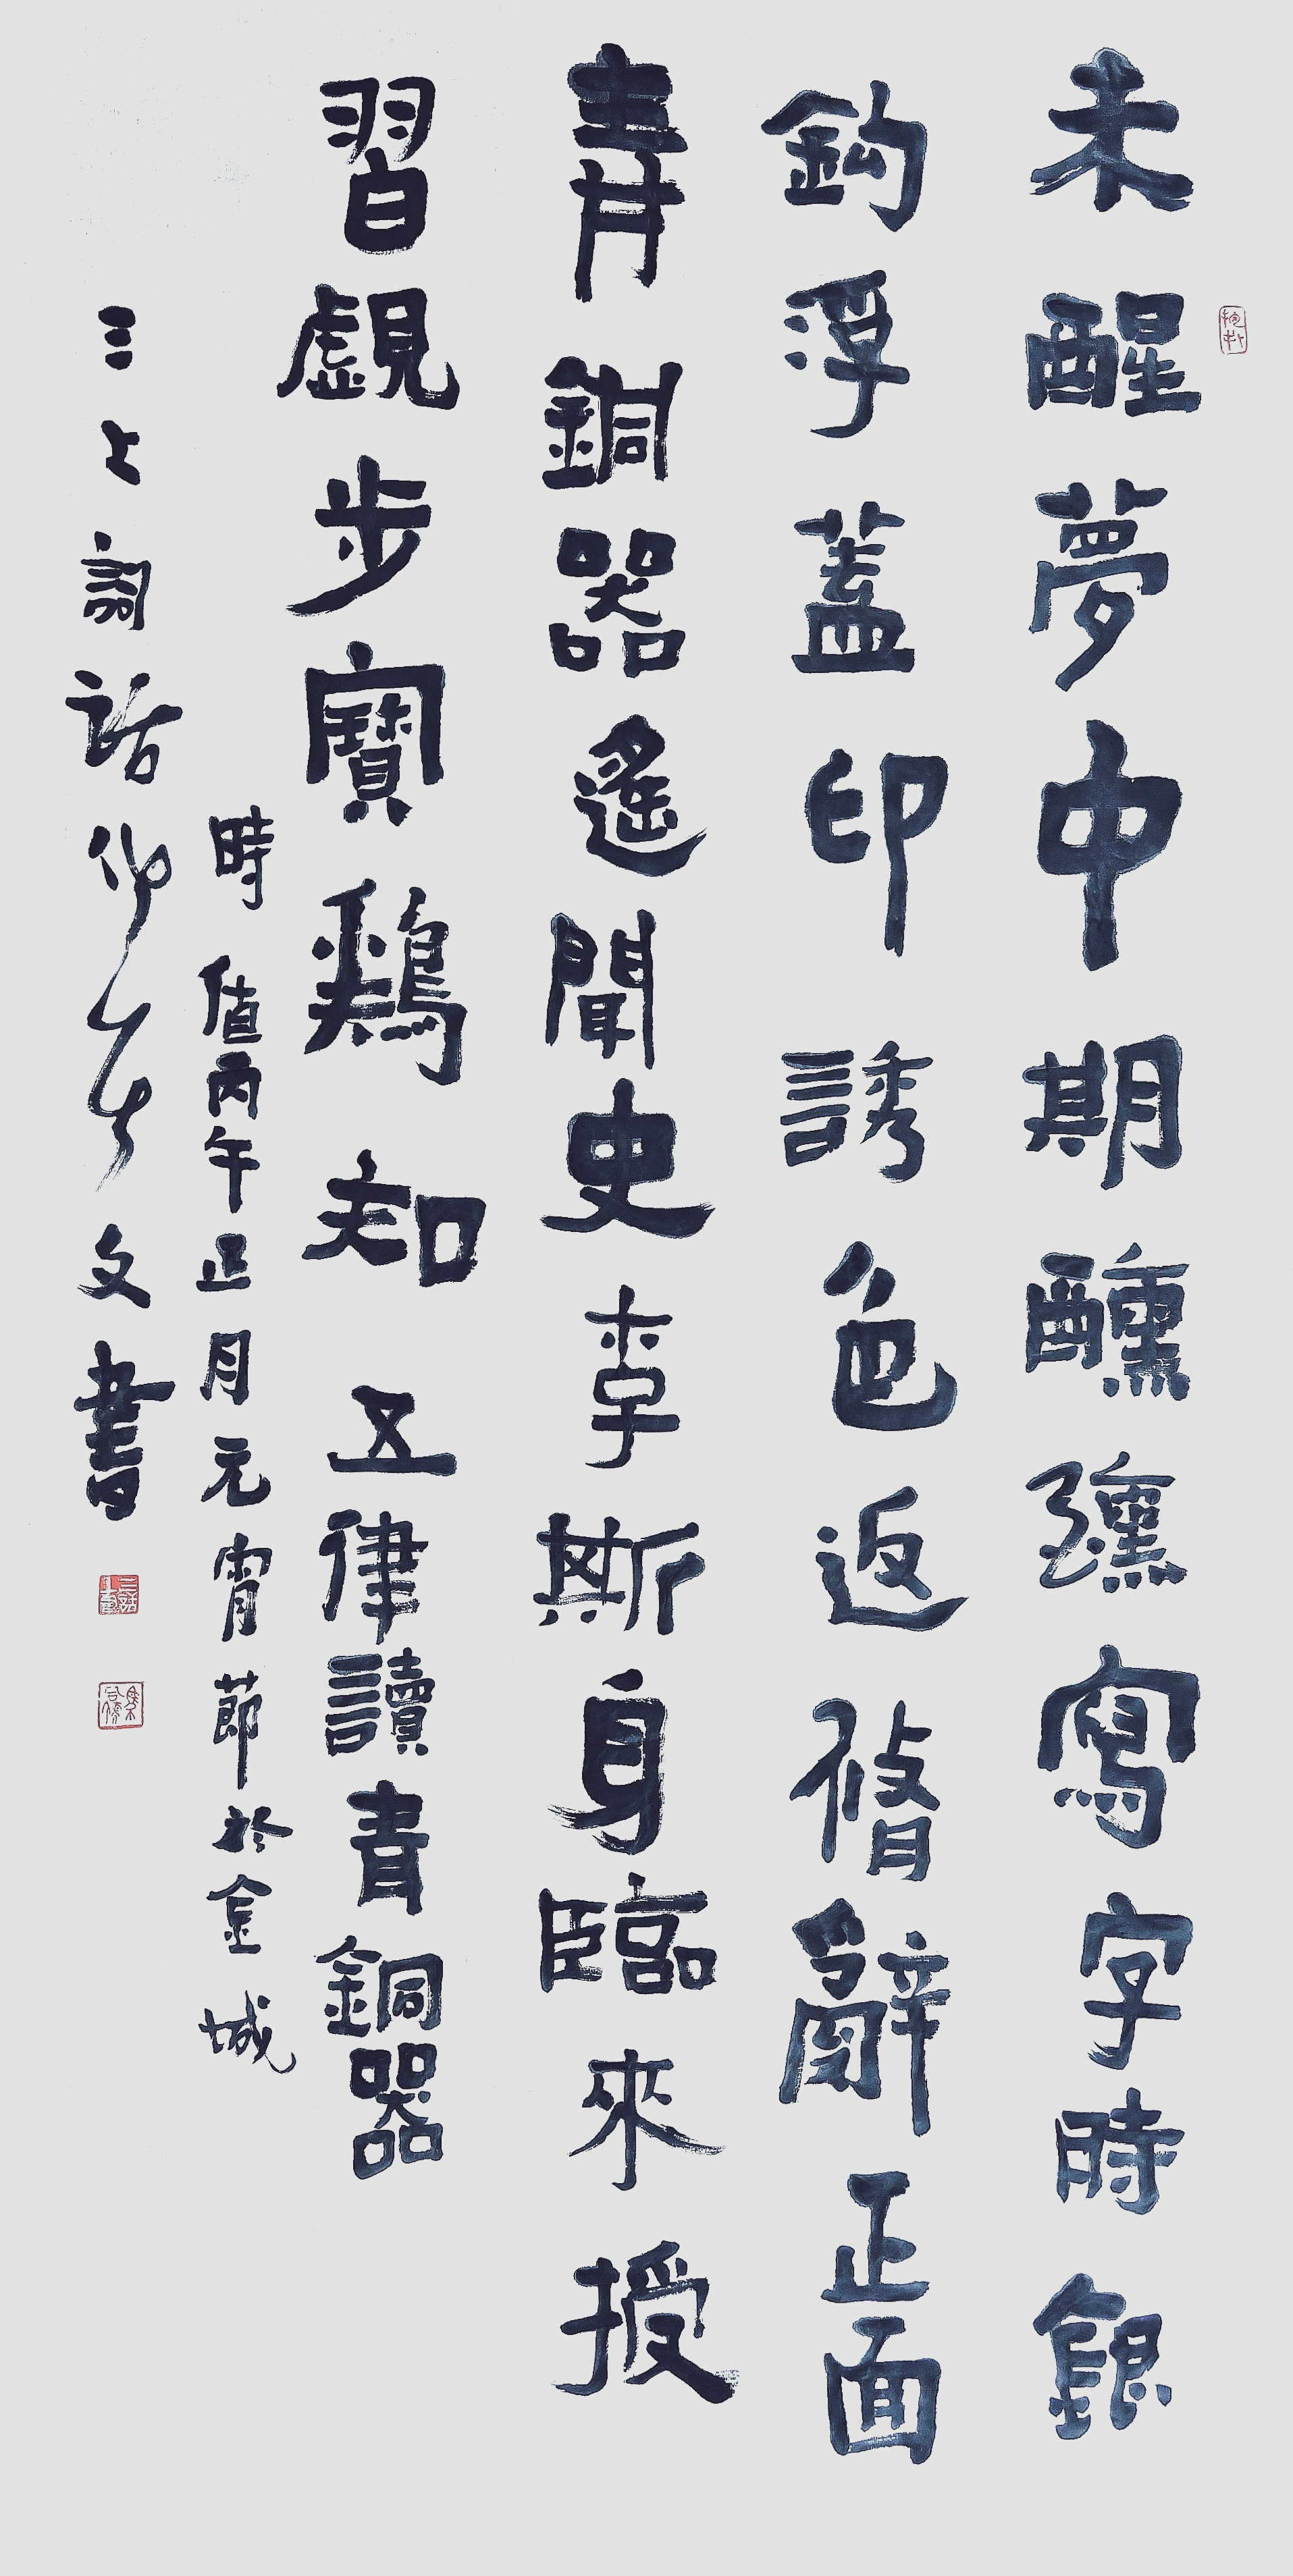 未醒夢中期醺醺寫字時銀
鈎浮蓋印誘色返脩辭正面
青銅器遙聞史李斯身臨來授
習覷步寶鷄知五律讀青銅器
時值丙午正月元宵節於金城
三上詞話文書